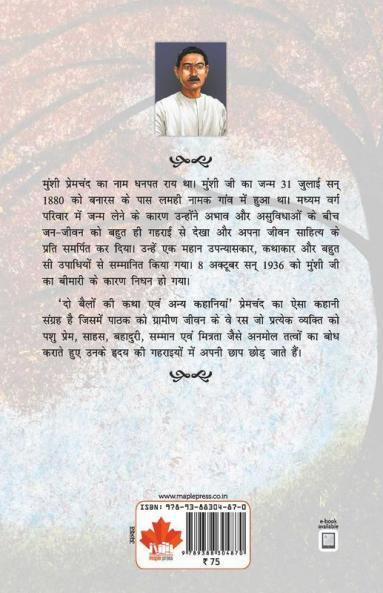 मुंशी प्रेमचंद का नाम धनपत राय था। मुंशी जी का जन्म 31 जुलाई सन्
1880 को बनारस के पास लमही नामक गांव में हुआ था। मध्यम वर्ग
परिवार में जन्म लेने के कारण उन्होंने अभाव और असुविधाओं के बीच
जन-जीवन को बहुत ही गहराई से देखा और अपना जीवन साहित्य के
प्रति समर्पित कर दिया। उन्हें एक महान उपन्यासकार, कथाकार और बहुत
सी उपाधियों से सम्मानित किया गया। 8 अक्टूबर सन् 1936 को मुंशी जी
का बीमारी के कारण निधन हो गया।
'दो बैलों की कथा एवं अन्य कहानियां' प्रेमचंद का ऐसा कहानी
संग्रह है जिसमें पाठक को ग्रामीण जीवन के वे रस जो प्रत्येक व्यक्ति को
पशु प्रेम, साहस, बहादुरी, सम्मान एवं मित्रता जैसे अनमोल तत्वों का बोध
कराते हुए उनके हृदय की गहराइयों में अपनी छाप छोड़ जाते हैं।
www.maplepress.co.in
ISBN: 978-93-88304-87-0
maple press
9789388304870
₹ 75
उपन्यास
e-book
available